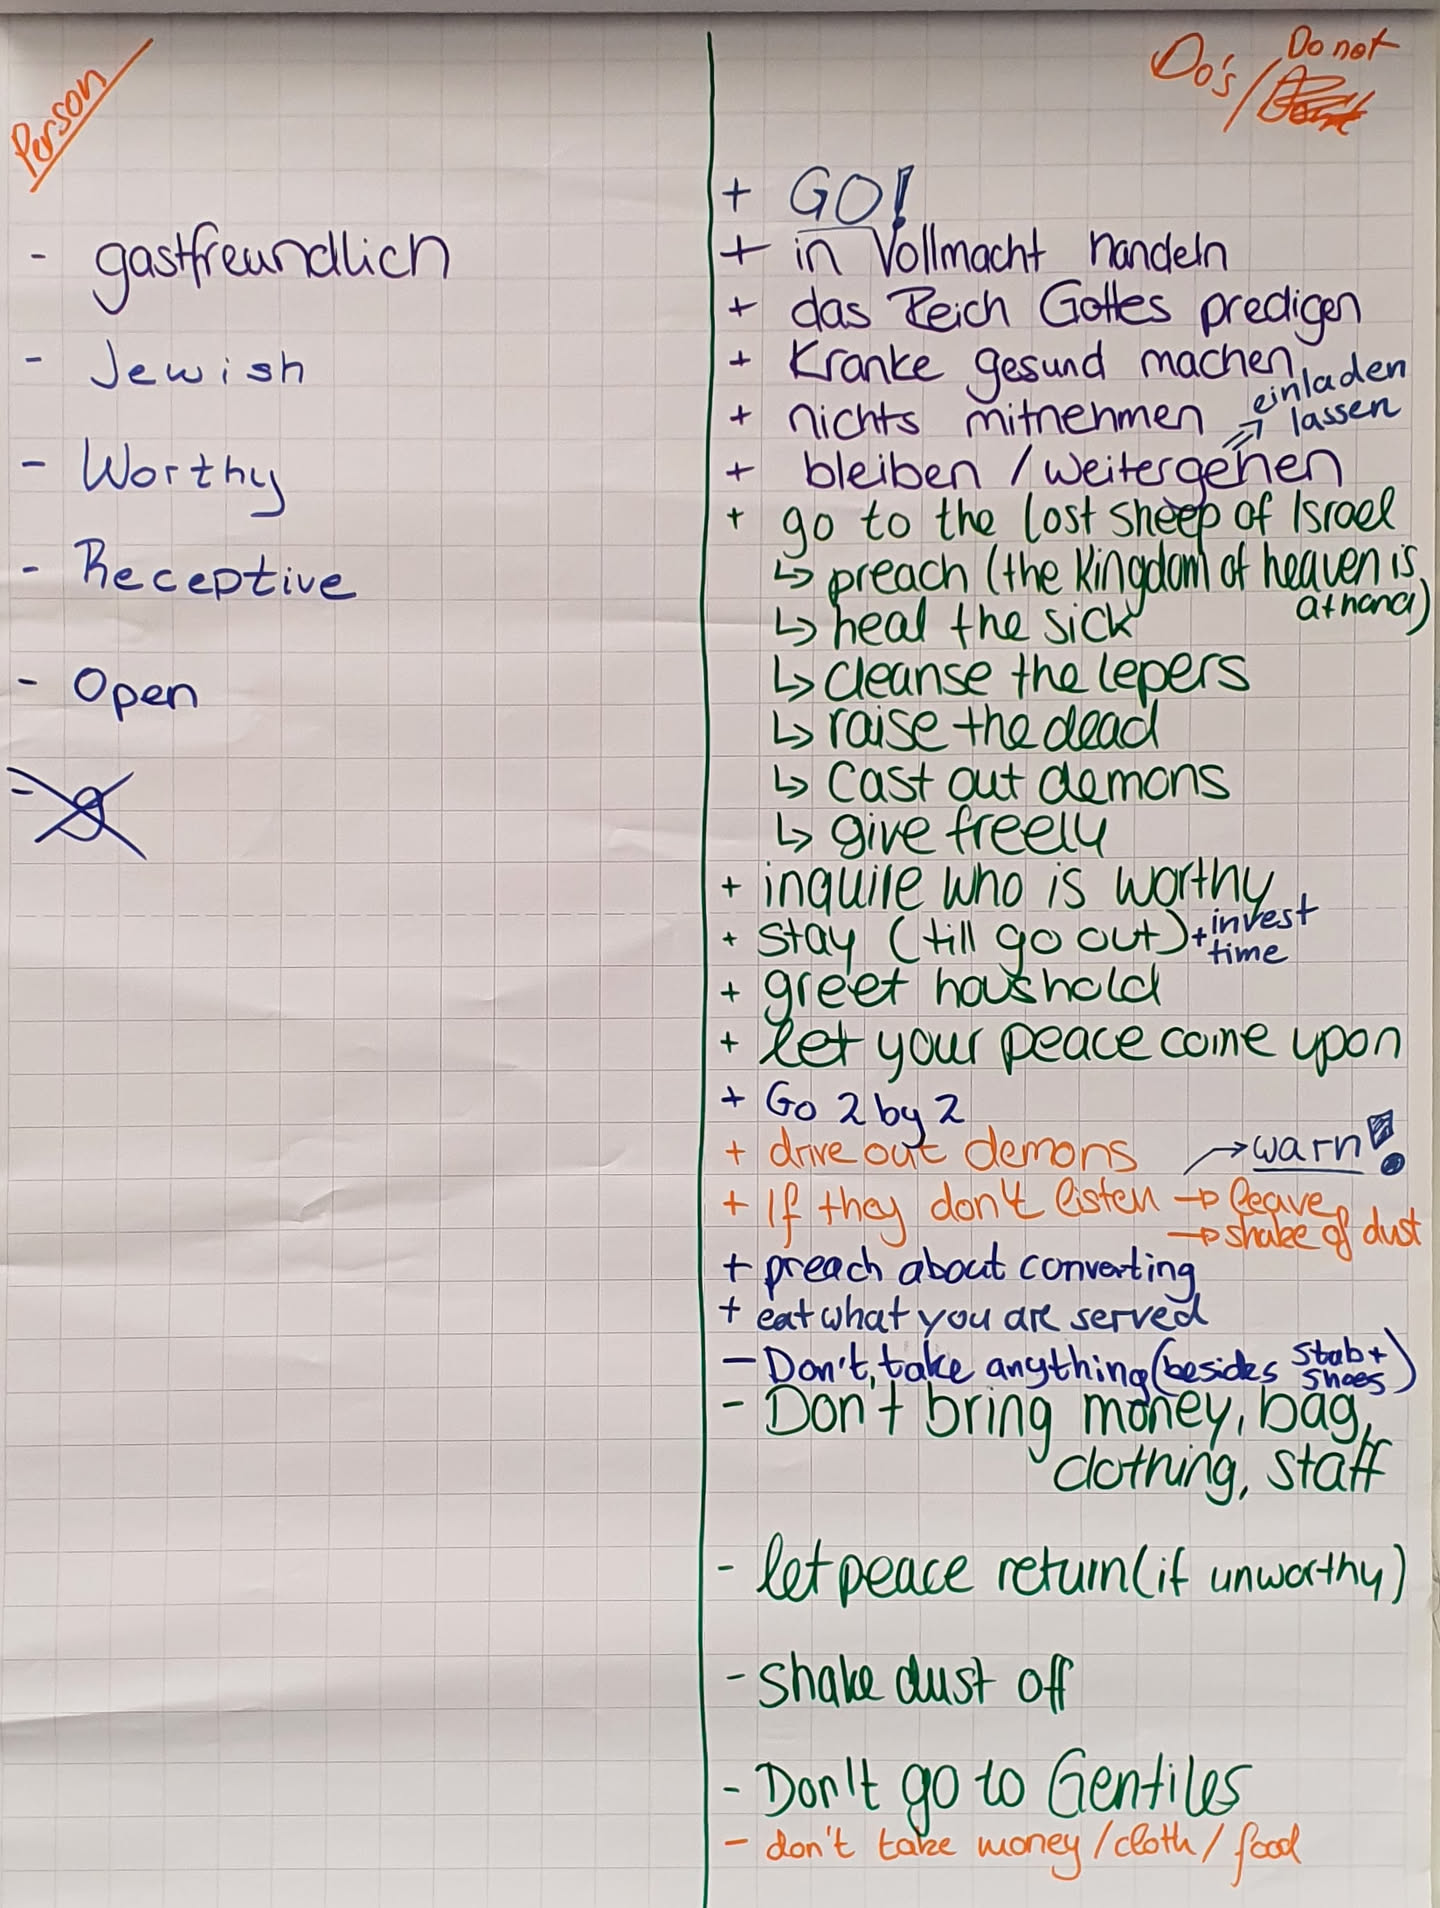 Person
- gastfreundlich
- Jewish
- Worthy
- Receptive
- Open
-
Do's / Do not
+ GO!
+ in Vollmacht handeln
+ das Reich Gottes predigen
+ Kranke gesund machen
+ nichts mitnehmen
+ bleiben / weitergehen ⇒ einladen
lassen
+ go to the lost sheep of Israel
↳ preach (the Kingdom of heaven is
at hand)
↳ heal the sick
↳ cleanse the lepers
↳ raise the dead
↳ cast out demons
↳ give freely
+ inquire who is worthy
+ stay (till go out) + invest
time
+ greet houshold
+ let your peace come upon
+ Go 2 by 2
+ drive out demons
→ warn!
+ If they don't listen → leave
→ shake of dust
+ preach about converting
+ eat what you are served
- Don't take anything (besides Stab +
Shoes)
- Don't bring money, bag,
clothing, staff
- let peace return (if unworthy)
- shake dust off
- Don't go to Gentiles
- don't take money / cloth / food